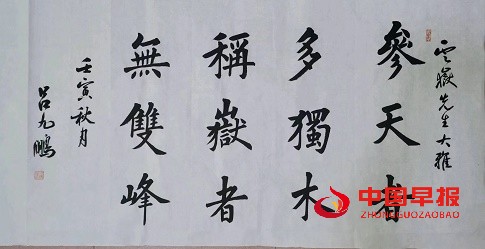 雲嶽先生大雅
參天者
多獨木
稱嶽者
無雙峰
壬寅秋月
呂九鵬
中国早报
ZHONGUOZAOBAO